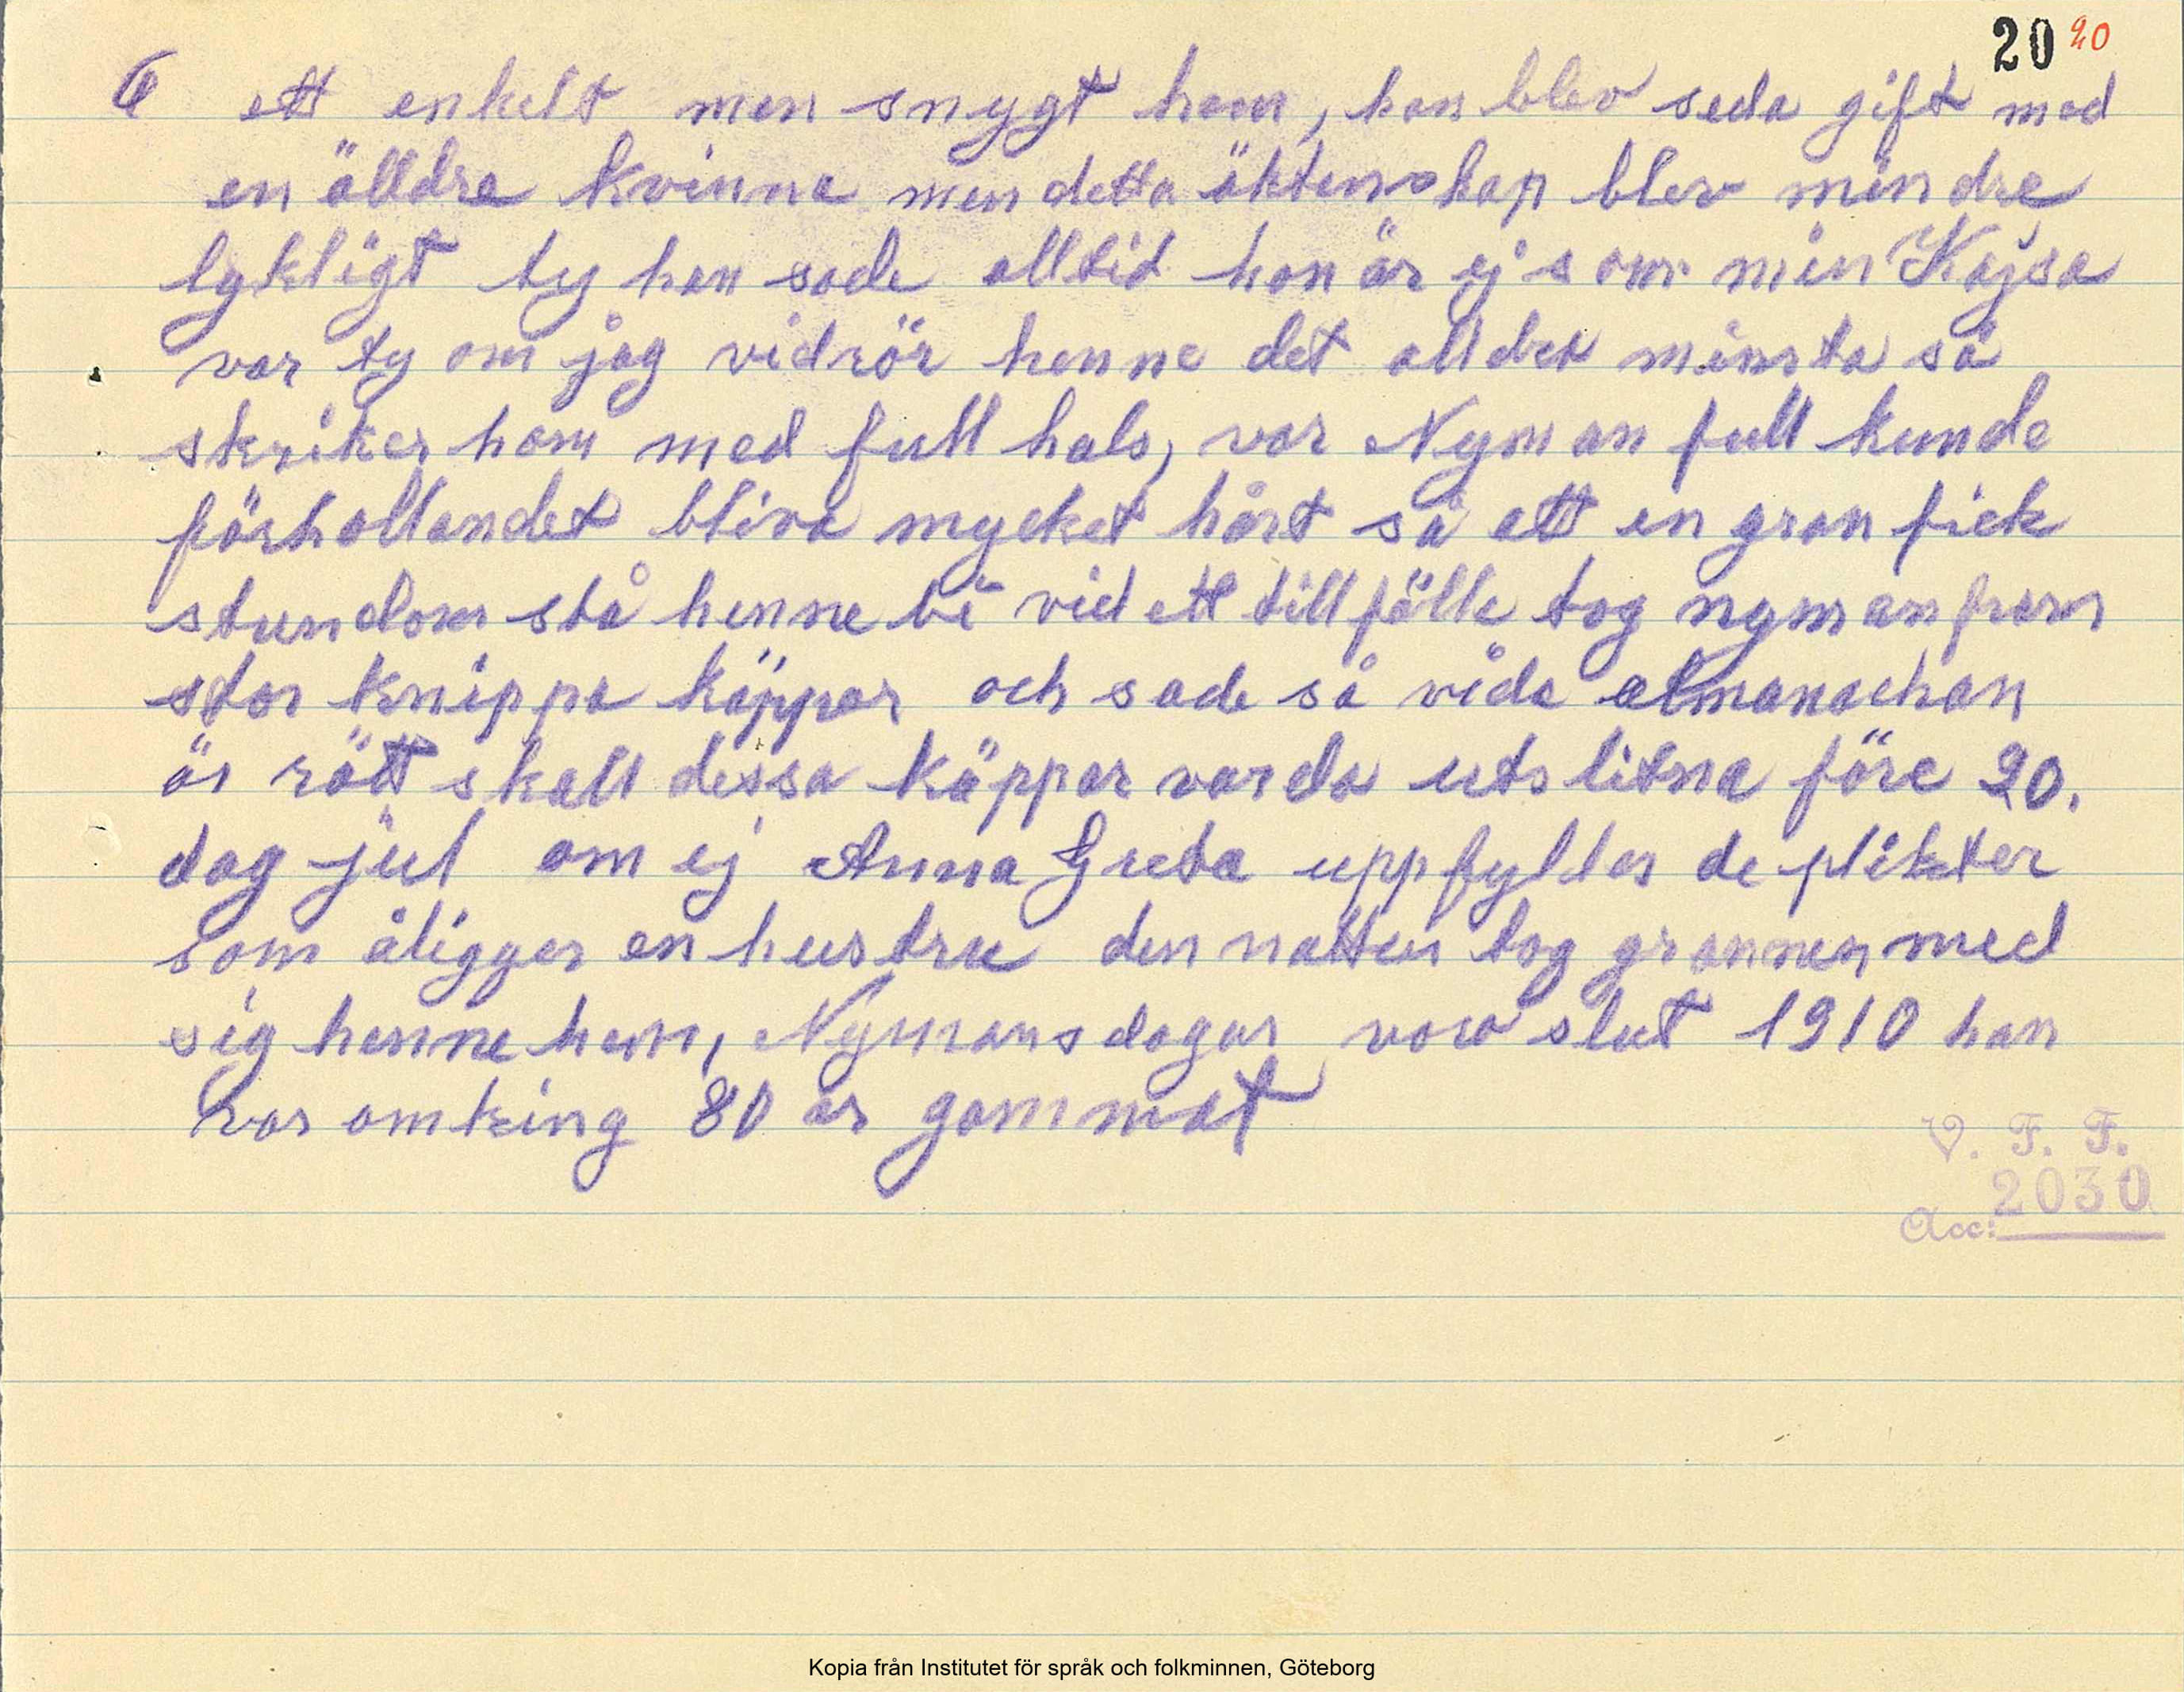 20 20
6 ett enkelt men snygt hem, han blev seda gift med
en älldre kvinna men detta äktenskap blev mindre
lykligt ty han sade alltid hon är ej som min Kajsa
var ty om jag vidrör henne det alldra minsta så
skriker hon med full hals, var Nyman full kunde
förhollandet bliva mycket hårt så att en gran fick
stundom stå henne bi vid ett tillfälle tog nyman fram
stor knippa käppar och sade så vida almanachan
är rätt skall dessa käppar varda utslitna före 20.
dag jul om ej Anna Greta uppfyller de plikter
som åligger en hustru den natten tog grannen med
sig henne hem, Nymans dagar voro slut 1910 han
var omking 80 år gammat
V. F. F.
Acc: 2030
Kopia från Institutet för språk och folkminnen, Göteborg